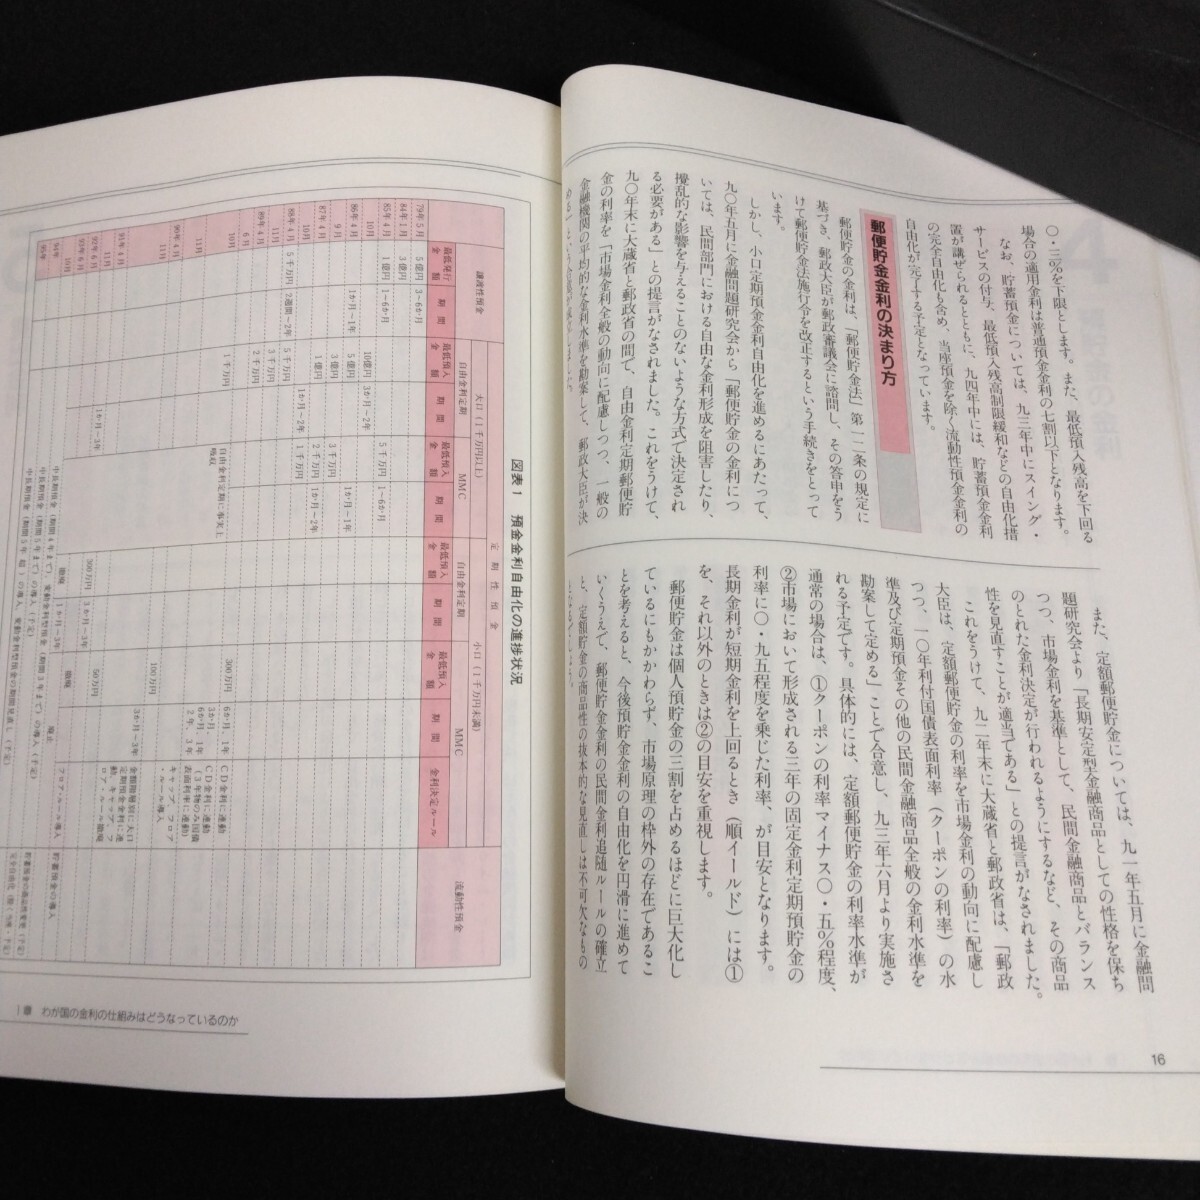 〇・三%を下限とします。また、最低預入残高を下回る
場合の適用金利は普通預金金利の七割以下となります。
なお、貯蓄預金については、九三年中にスイング・
サービスの付与、最低預入残高制限緩和などの自由化措
置が講ぜられるとともに、九四年中には、貯蓄預金金利
の完全自由化も含め、当座預金を除く流動性預金金利の
自由化が完了する予定となっています。
郵便貯金金利の決まり方
郵便貯金の金利は、「郵便貯金法」第一二条の規定に
基づき、郵政大臣が郵政審議会に諮問し、その答申をう
けて郵便貯金法施行令を改正するという手続きをとって
います。
しかし、小口定期預金金利自由化を進めるにあたって、
九〇年五月に金融問題研究会から「郵便貯金の金利につ
いては、民間部門における自由な金利形成を阻害したり、
攪乱的な影響を与えることのないような方式で決定され
る必要がある」との提言がなされました。これをうけて、
九〇年末に大蔵省と郵政省の間で、自由金利定期郵便貯
金の利率を「市場金利全般の動向に配慮しつつ、一般の
金融機関の平均的な金利水準を勘案して、郵政大臣が決
また、定額郵便貯金については、九一年五月に金融問
題研究会より「長期安定型金融商品としての性格を保ち
つつ、市場金利を基準として、民間金融商品とバランス
のとれた金利決定が行われるようにするなど、その商品
性を見直すことが適当である」との提言がなされました。
これをうけて、九二年末に大蔵省と郵政省は、「郵政
大臣は、定額郵便貯金の利率を市場金利の動向に配慮し
つつ、一〇年利付国債表面利率(クーポンの利率)の水
準及び定期預金その他の民間金融商品全般の金利水準を
勘案して定める」ことで合意し、九三年六月より実施さ
れる予定です。具体的には、定額郵便貯金の利率水準が
通常の場合は、①クーポンの利率マイナス〇・五%程度、
②市場において形成される三年の固定金利定期預貯金の
利率に〇・九五程度を乗じた利率、が目安となります。
長期金利が短期金利を上回るとき(順イールド)には①
を、それ以外のときは②の目安を重視します。
郵便貯金は個人預貯金の三割を占めるほどに巨大化し
ているにもかかわらず、市場原理の枠外の存在であるこ
とを考えると、今後預貯金金利の自由化を円滑に進めて
いくうえで、郵便貯金金利の民間金利追随ルールの確立
と、定額貯金の商品性の抜本的な見直しは不可欠なもの
16
図表1 預金金利自由化の進捗状況
譲渡性預金
最低発行金額
期間
定期性預金
大口(1千万円以上)
自由金利定期
最低預入金額
期間
MMC
最低預入金額
期間
小口(1千万円未満)
自由金利定期
最低預入金額
期間
MMC
最低預入金額
期間
金利決定ルール
流動性預金
79年5月 5億円 3~6か月
84年1月 3億円
85年4月 1億円 1~6か月 5千万円 1~6か月
10月 10億円 3か月~2年
86年4月 1か月~1年 5億円 1か月~1年
9月 3億円 3千万円
87年4月 1億円 2千万円 1か月~2年
10月 1か月~2年 1千万円
88年4月 5千万円 2週間~2年 5千万円
11月 3千万円
89年4月 2千万円
6月 300万円 6か月、1年 CD金利に連動
10月 1千万円 自由金利定期に事実上吸収 3か月、6か月、1年、2年、3年 CD金利に連動(3年物のみ国債表面利率に連動)
90年4月 100万円 キャップ、フロアー・ルール導入
11月 3か月~3年 金額階層別に大口定期預金金利に連動 キャップ・フロアー・ルール撤廃
91年4月 50万円
11月 1か月~3年 300万円 3か月~3年
1章 わが国の金利の仕組みはどうなっているのか